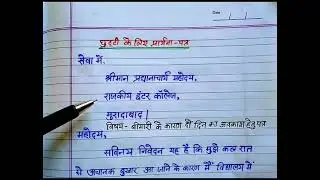 छुट्टी के लिए प्रार्थना-पत्र
सेवा में,
श्रीमान प्रधानाचार्य महोदय,
राजकीय इंटर कॉलेज,
मुरादाबाद |
विषय- बीमारी के कारण दो दिन का अवकाश हेतु पत्र
महोदय,
सविनय निवेदन यह है कि मुझे कल रात
से अचानक बुखार आ जाने के कारण मैं विद्यालय में